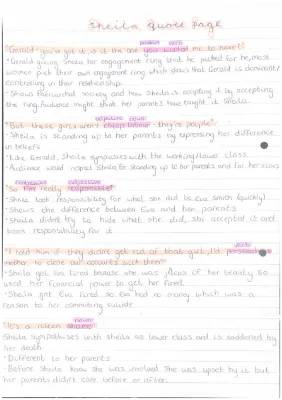 Sheila Quote Page
possessive verb
"Gerald - you've got it, is it the one you wanted me to have?"
• Gerald giving Sheila her engagement ring that he picked for her, most
women pick their own engagement ring which shows that Gerald is dominant/
controlling in their relationship.
• Shows patriarchal society and how Sheila is accepting it by accepting
the ring. Audience might think her parents have taught it Sheila.
adjective noun
"But these girls aren't cheap labour - they're people"
• Sheila is standing up to her parents by expressing her difference
in beliefs
• Like Gerald, Sheila sympathises with the working/lower class.
• Audience would respect Sheila for standing up to her parents and for her views
adjective
"So I'm really responsible"
• Sheila took responsibility for what she did to Eva Smith (quickly)
• Shows the difference between Eva and her parents
• Sheila didn't try to hide what she did, she accepted it and
took responsibility for it
verb
"I told him if they didn't get rid of that girl, I'd persuade
mother to close our account with them"
• Sheila got Eva fired because she was jealous of her beauty so
used her financial power to get her fired.
• Sheila got Eva fired so Eva had no money which was a
reason to her commiting suicide.
noun
"It's a rotten shame"
Sheila sympathises with Sheila as lower class and is saddened by
her death
• Different to her parents
• Before Sheila knew she was involved she was upset by it but
her parents didn't care before or after.